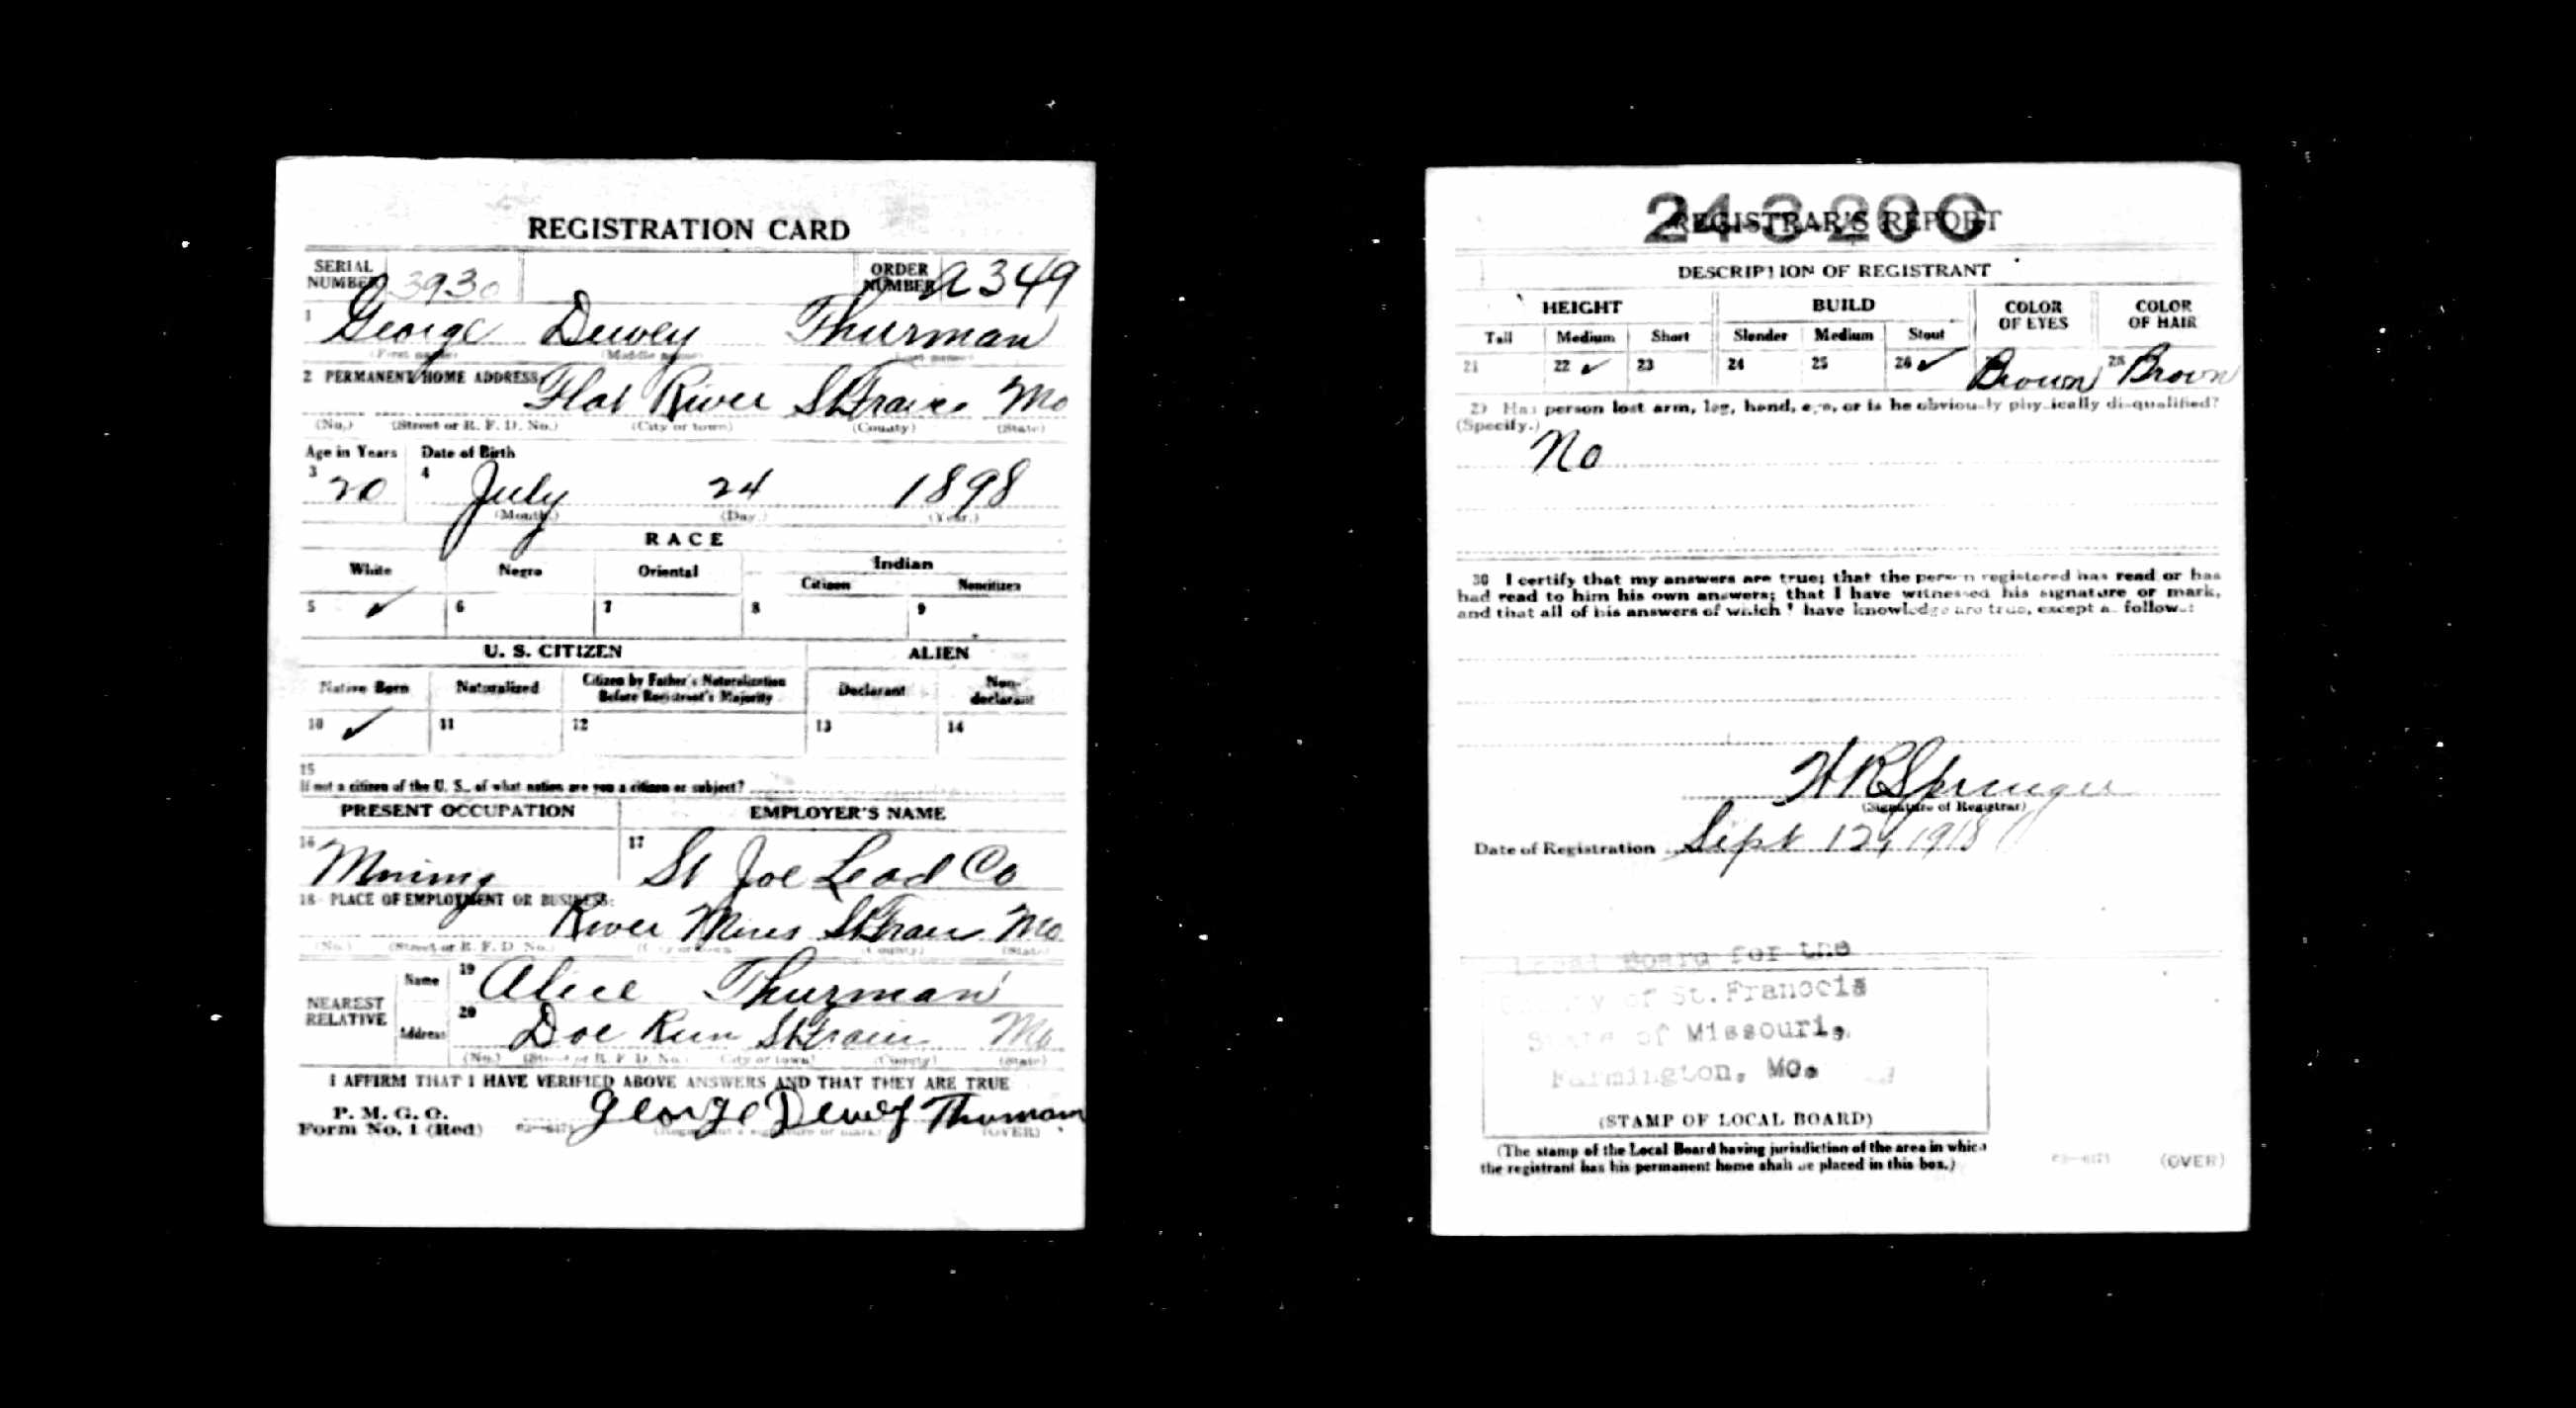 REGISTRATION CARD
SERIAL NUMBER 3930 ORDER NUMBER A349
1 George Dewey Thurman
(First name) (Middle name) (Last name)
2 PERMANENT HOME ADDRESS
Flat River St Frairs Mo
(No.) (Street or R. F. D. No.) (City or town) (County) (State)
Age in Years Date of Birth
3 20 4 July 24 1898
(Month.) (Day.) (Year.)
RACE
White Negro Oriental Indian
Citizen Noncitizen
5 ✓ 6 7 8 9
U. S. CITIZEN ALIEN
Native Born Naturalized Citizen by Father's Naturalization Before Registrant's Majority Declarant Non-declarant
10 ✓ 11 12 13 14
15
If not a citizen of the U. S., of what nation are you a citizen or subject?
PRESENT OCCUPATION EMPLOYER'S NAME
16 Mining 17 St Joe Lead Co
18 PLACE OF EMPLOYMENT OR BUSINESS:
River Mines Mo
(No.) (Street or R. F. D. No.) (City or town) (County) (State)
NEAREST RELATIVE
Name 19 Alice Thurman
Address 20 Doe Run Mo
(No.) (Street or R. F. D. No.) (City or town) (County) (State)
I AFFIRM THAT I HAVE VERIFIED ABOVE ANSWERS AND THAT THEY ARE TRUE
P. M. G. O.
Form No. 1 (Red) George Dewey Thurman
(Registrant's signature or mark) (OVER)
REGISTRAR'S REPORT
DESCRIPTION OF REGISTRANT
HEIGHT BUILD COLOR OF EYES COLOR OF HAIR
Tall Medium Short Slender Medium Stout
21 22 ✓ 23 24 25 26 ✓ Brown 28 Brown
29 Has person lost arm, leg, hand, eye, or is he obviously physically disqualified?
(Specify.)
No
30 I certify that my answers are true; that the person registered has read or has
had read to him his own answers; that I have witnessed his signature or mark,
and that all of his answers of which I have knowledge are true, except as follows:
H R Springer
(Signature of Registrar)
Date of Registration Sept 12, 1918
Local Board for the
County of St. Francois
State of Missouri,
Farmington, Mo.
(STAMP OF LOCAL BOARD)
(The stamp of the Local Board having jurisdiction of the area in which
the registrant has his permanent home shall be placed in this box.)
(OVER)